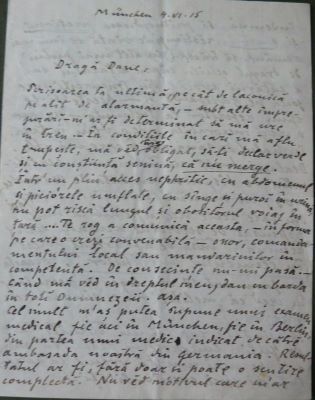 München 9.VI.15
Dragă Dane,
Scrisoarea ta ultimă, pe cât de laconică
pe atât de alarmantă, – subt alte împre-
jurări – m'ar fi determinat să mă urc
în tren. – În condițiile în cari mă aflu
trupește, mă văd silit obligat, să-ți declar verde
și cu constanță senină, că nu merge.
Într'un plin acces nephritic, cu abdomenul
și piciórele umflate, cu sînge și puroi în urină,
nu pot risca lungul și obositorul voiaj în
țară ... Te rog a comunica aceasta, – in forma
pe care o crezi convenabilă – onor. comanda-
mentului local sau mandarinilor în
competență. De consecințe nu-mi pasă. –
când mă văd în dreptul meu, dau in barda
în toți Dumnezeii. asa.
Cel mult m'aș putea supune unui examen
medical, fie aci în München, fie în Berlin,
din partea unui medic indicat de către
ambasada noastră din Germania. Resul-
tatul ar fi, fără doar și poate o scutire
complectă. Nu văd motivul care m'ar